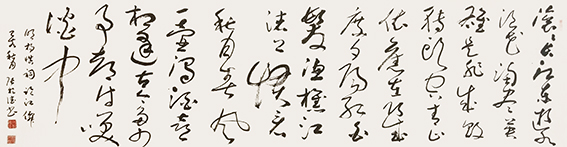 滚滚长江东逝水
浪花淘尽英
雄是非成败
转头空青山
依旧在几度
夕阳红白
发渔樵江
渚上惯看
秋月春风
一壶浊酒喜
相逢古今多少
事都付笑
谈中
明杨慎词临江仙